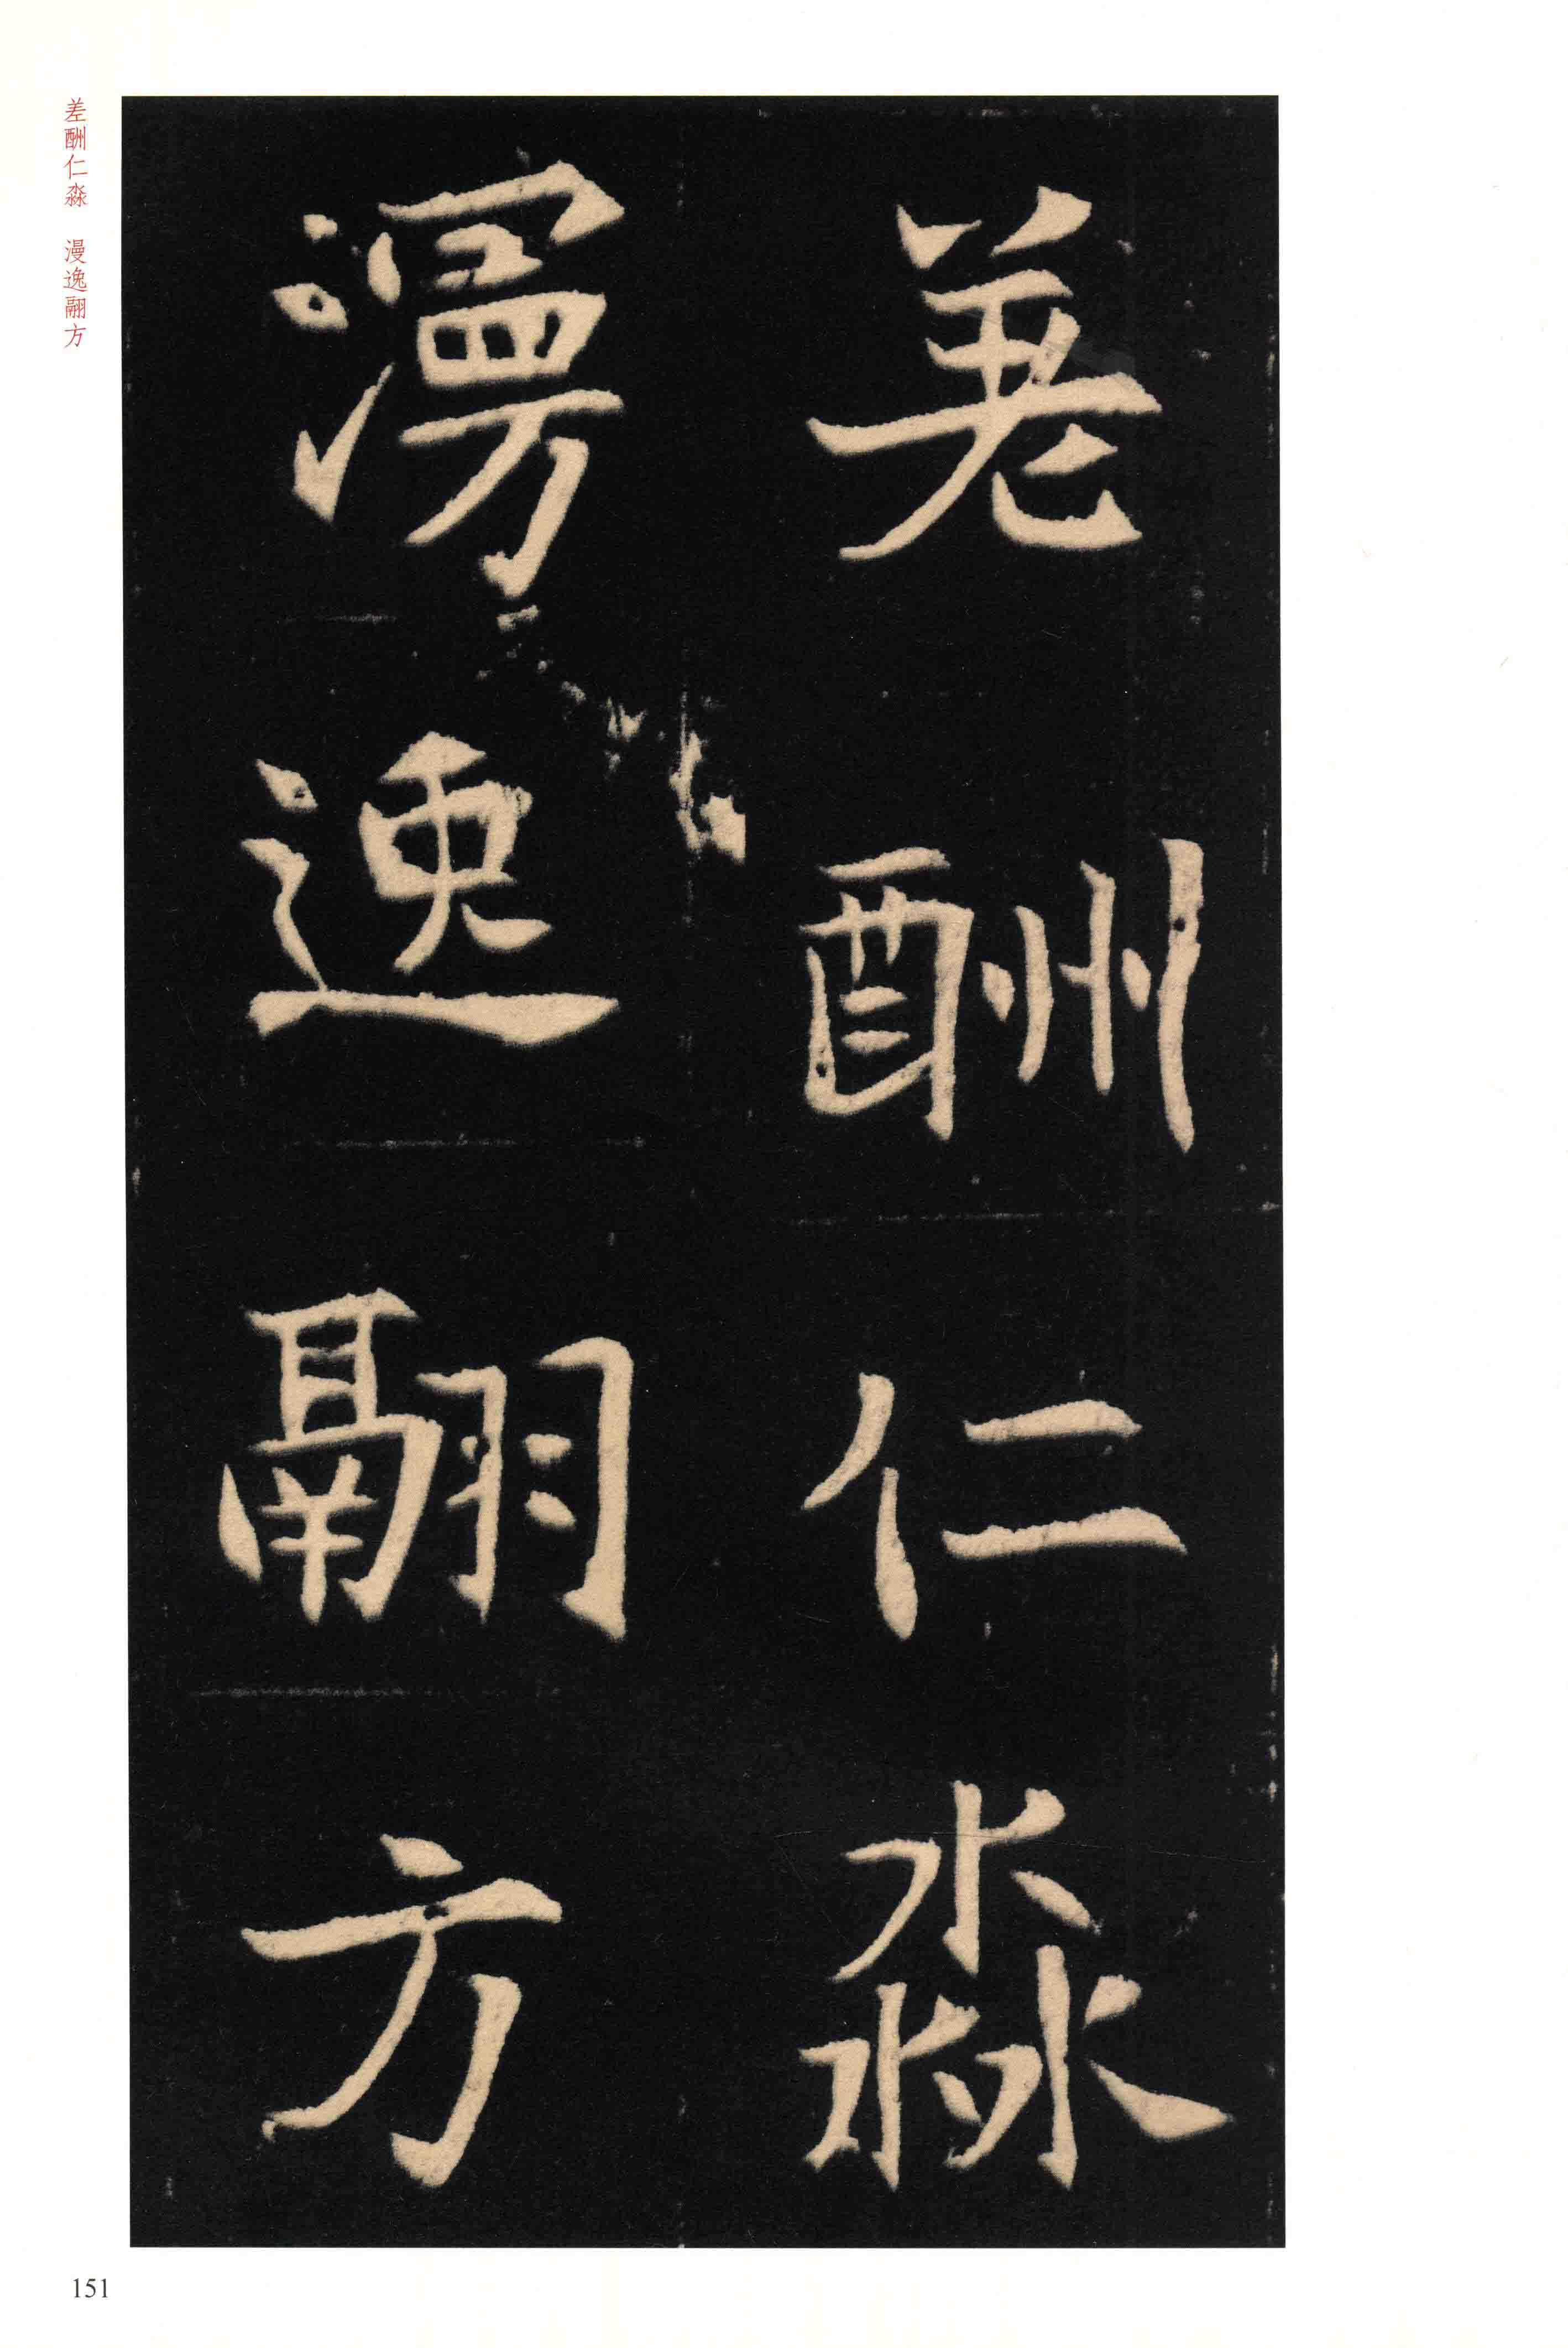 差酬仁淼
漫逸翮方
差酬仁淼　漫逸翮方
151